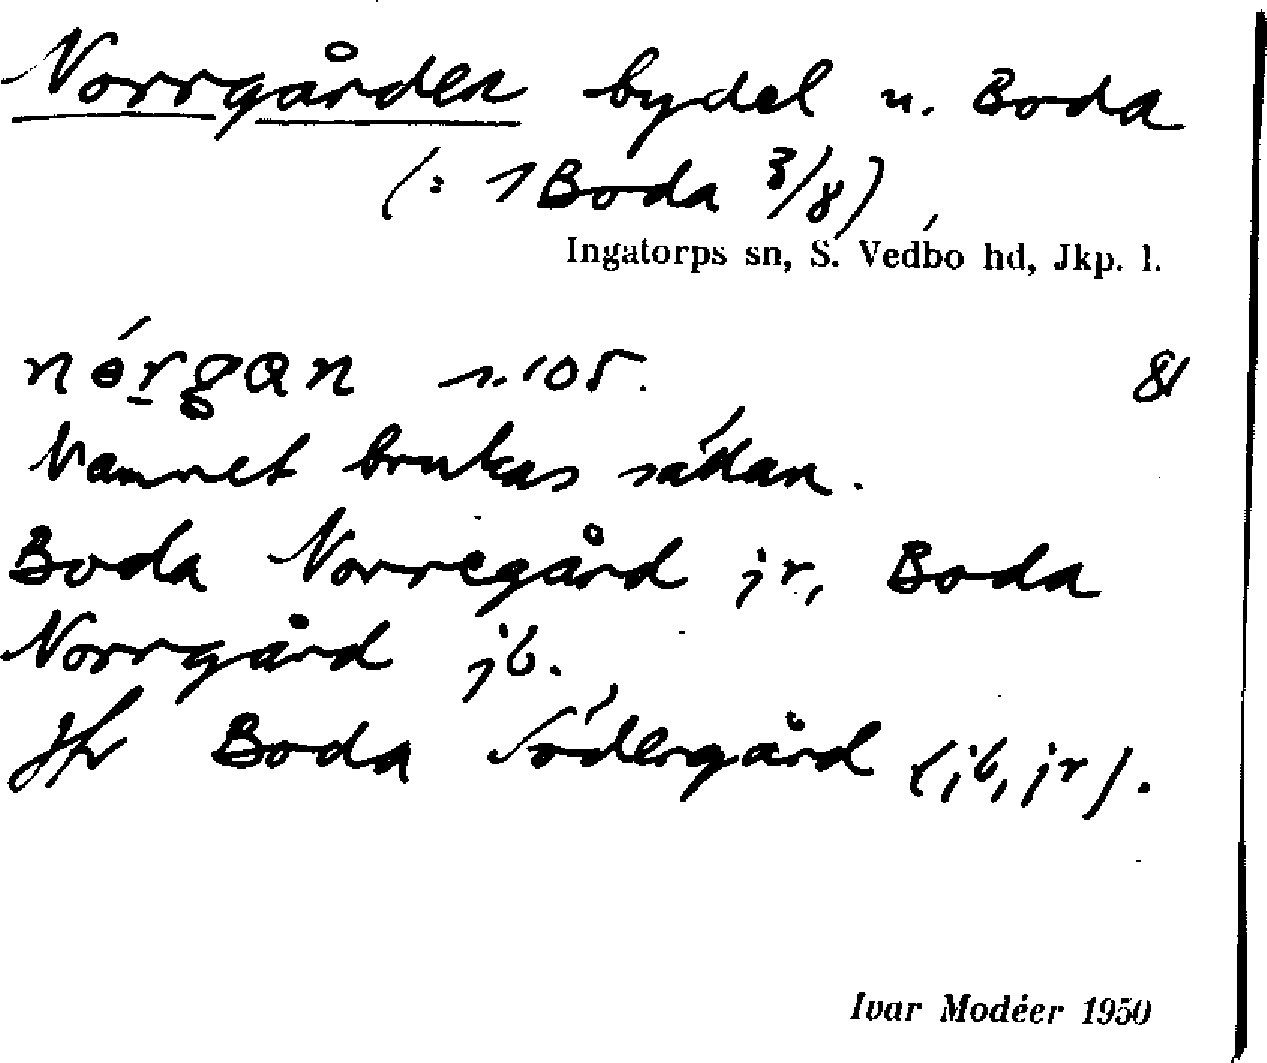 Norrgården bydel u. Boda
(: 1 Boda 3/8)
Ingatorps sn, S. Vedbo hd, Jkp. l.
nórgan 105. 81
Namnet brukas sådan.
Boda Norregård jr, Boda
Norrgård jb.
Jfr Boda Södergård (jb, jr).
Ivar Modéer 1950